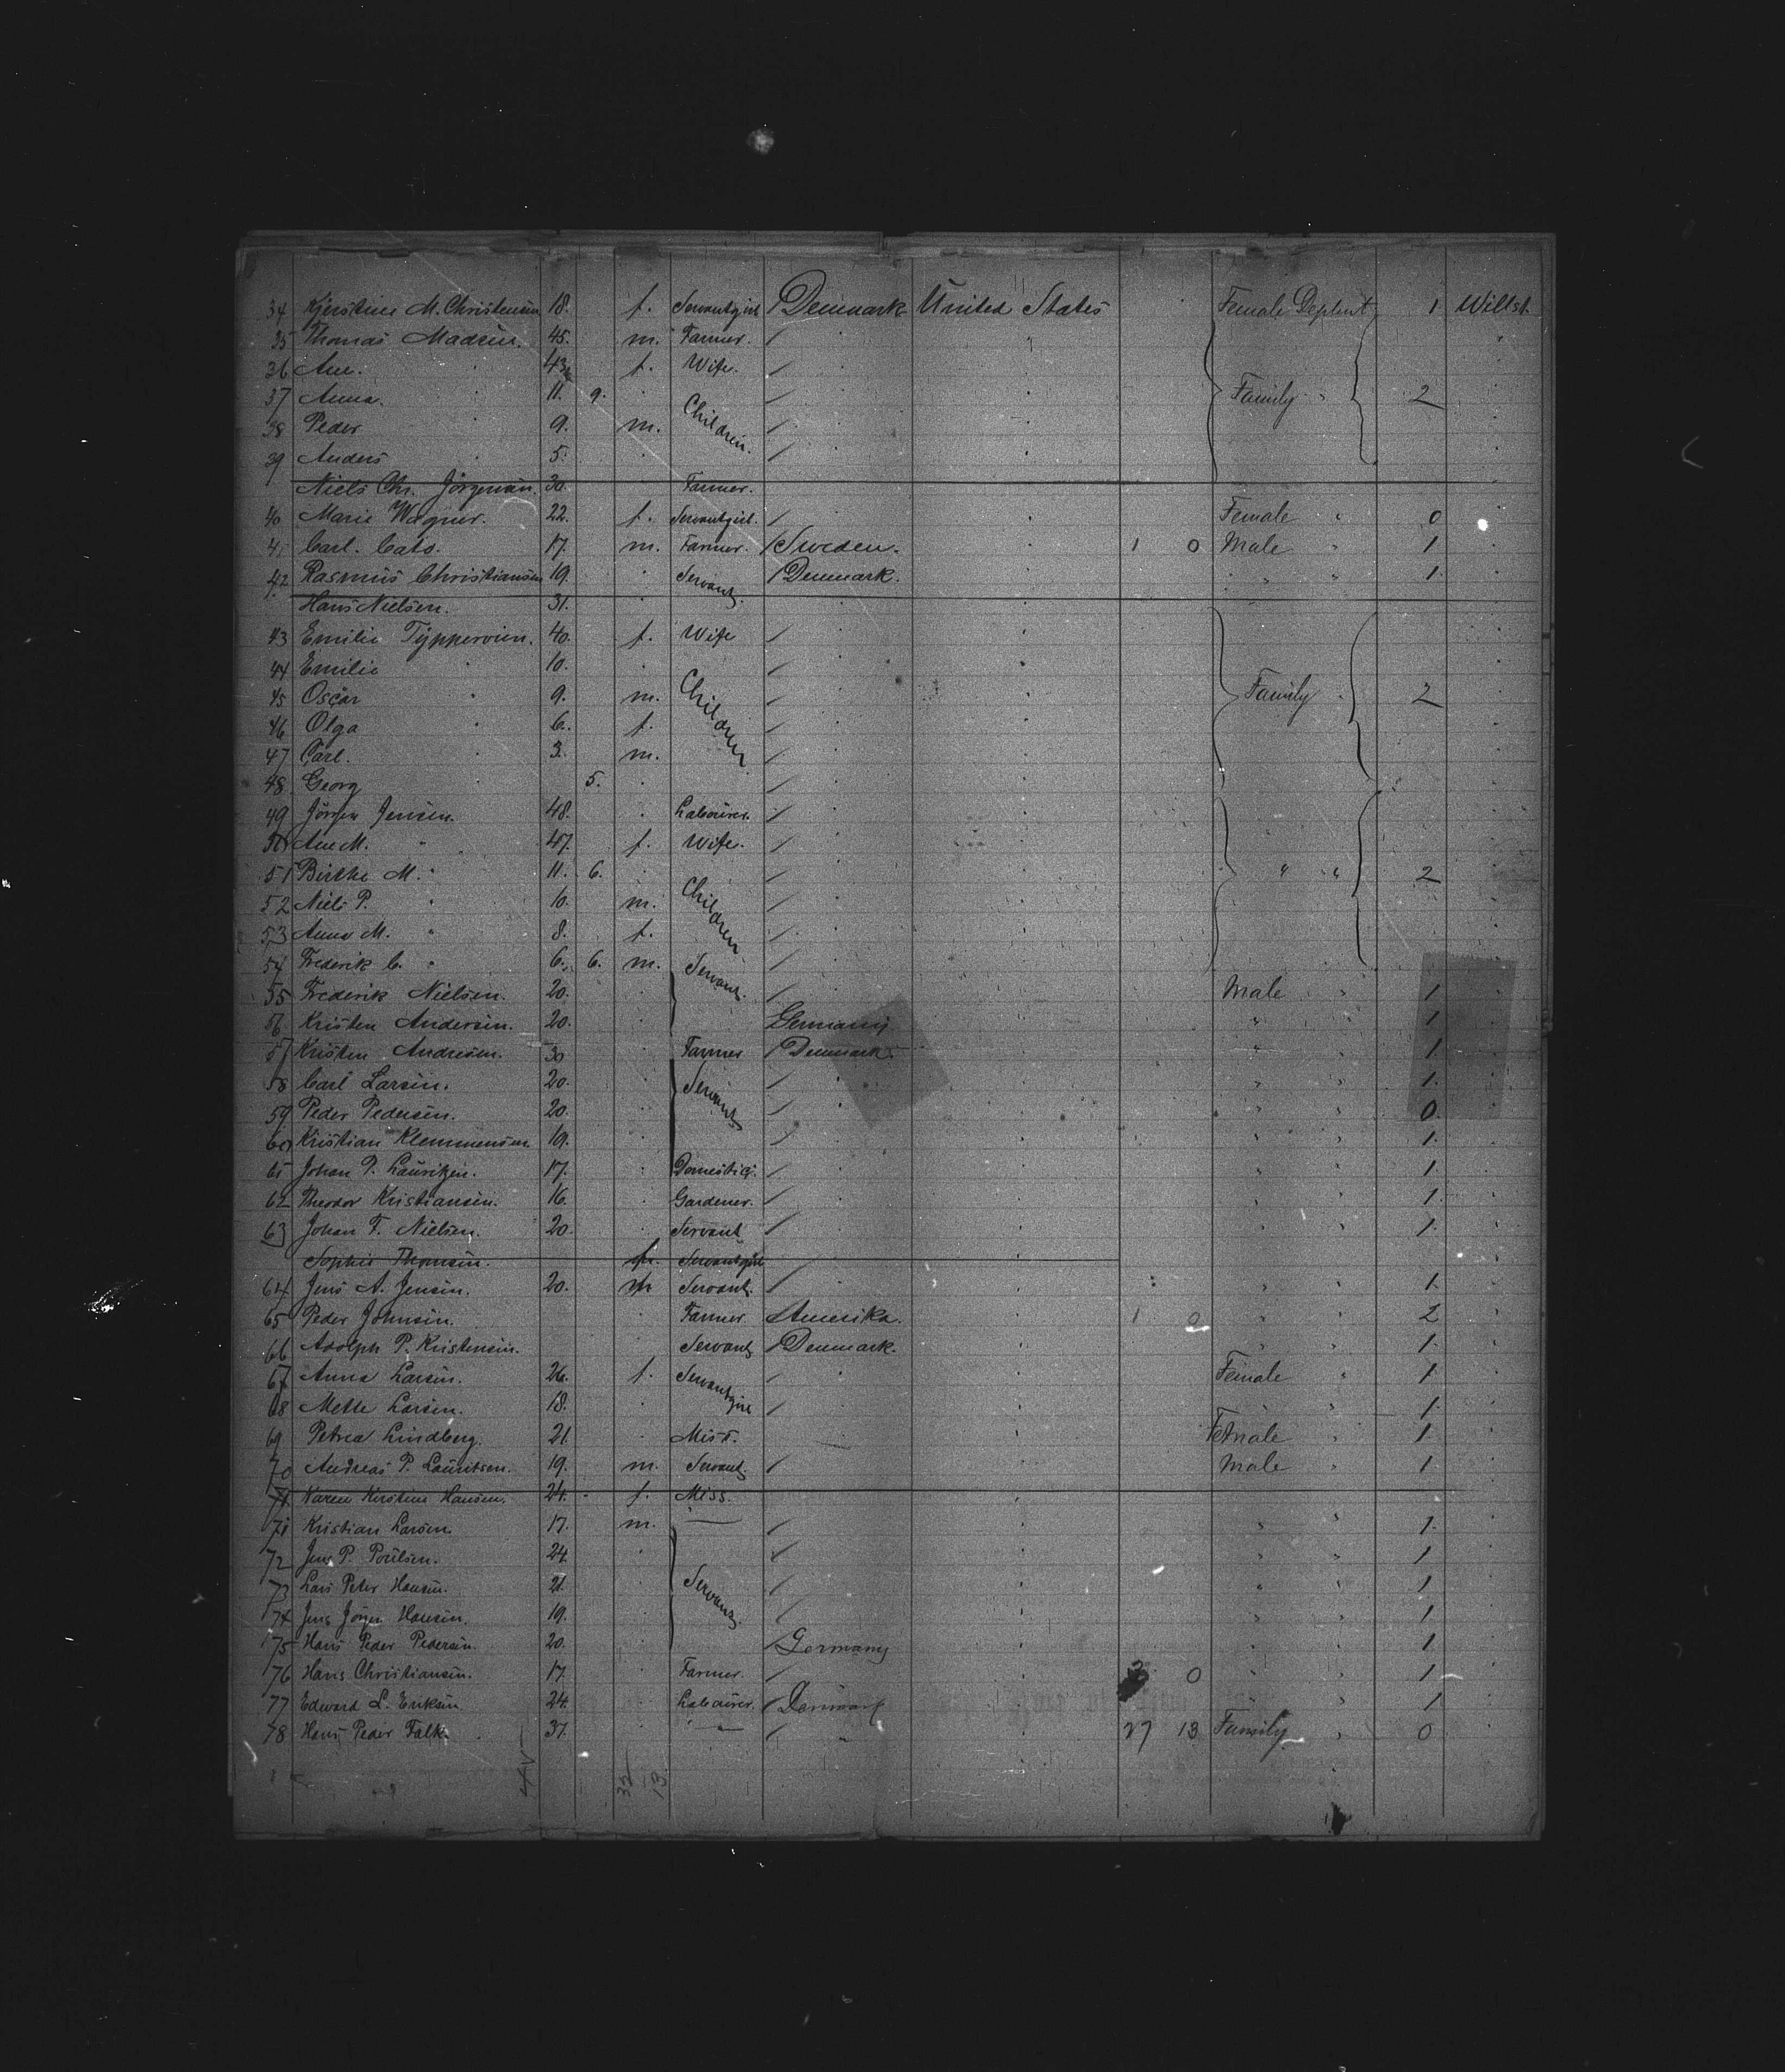 34 Kjerstine M. Christensen 18. f. Servantgirl Denmark United States Female Deptmt 1 Willst.
35 Thomas Madsen. 45. m. Farmer. /
36 Ane. 43 f. Wife. /
37 Anna. 11. 9. Children. / Family " 2
38 Peder 9. m. /
39 Anders 5. /
Niels Chr. Jörgensen. 30. Farmer.
40 Marie Wagner. 22. f. Servantgirl. / Female " 0
41 Carl. Cato. 17. m. Farmer. / Sweden. 1 0 Male " 1
42 Rasmus Christiansen 19. Servant. / Denmark. " " 1.
Hans Nielsen. 31.
43 Emilie 40. f. Wife /
44 Emilie 10. /
45 Oscar 9. m. Children / Family " 2
46 Olga 6. f. /
47 Carl. 3. m. /
48 Georg 5. /
49 Jörgen Jensen. 48. Labourer. /
50 Ane M. " 47. f. Wife. /
51 Birthe M. " 11. 6. / " " 2
52 Niels P. " 10. m. Children /
53 Anna M. " 8. f. /
54 Frederik C. " 6. 6. m. /
55 Frederik Nielsen. 20. Servant. / Male " 1
56 Kristen Andersen. 20. Germany " " 1
57 Kristen Andresen. 30 Farmer / Denmark. " " 1.
58 Carl Larsen. 20. Servants / " " 1.
59 Peder Pedersen. 20. / " " 0.
60 Kristian Klemmensen 19. / " " 1.
61 Johan P. Lauritzen. 17. Domestic. / " " 1.
62 Theodor Kristiansen. 16. Gardener. / " " 1.
63 Johan F. Nielsen. 20. Servant / " " 1.
Sophie Thomsen. Servantgirl
64 Jens A. Jensen. 20. m Servant. / " " 1.
65 Peder Johnsen. Farmer Amerika. 1 0 " " 2
66 Adolph P. Kristensen. Servant / Denmark. " " 1.
67 Anna Larsen. 26. f. Servantgirl / Female " 1
68 Mette Larsen. 18. / " " 1.
69 Petrea Lindberg. 21. Miss. Female " 1.
70 Andreas P. Lauritsen. 19. m. Servant. / Male " 1
71 Karen Kirstine Hansen. 24. f. Miss.
71 Kristian Larsen. 17. m. — / " " 1.
72 Jens P. Poulsen. 24. / " " 1
73 Lars Peter Hansen. 21. Servants / " " 1
74 Jens Jörgen Hansen. 19. / " " 1
75 Hans Peder Pedersen. 20. / Germany " " 1
76 Hans Christiansen. 17. Farmer. / 0 " " 1
77 Edward L. Eriksen 24. Labourer. / Denmark " 1
78 Hans Peder Falk. 37. " — / 27 13 Family " 0
32 13